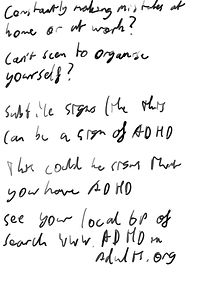 Constantly making mistakes at
home or at work?
Can't seem to organise
yourself?
subtle signs like this
can be a sign of ADHD
This could be signs that
you have ADHD
see your local GP of
search www.ADHDin
adults.org